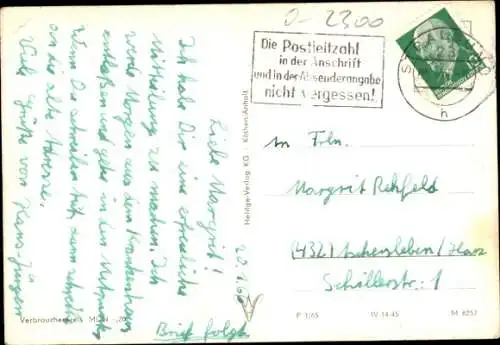 0-2300
Die Postleitzahl
in der Anschrift
und in der Absenderangabe
nicht vergessen!
20.1.66
Liebe Margrit!
Ich habe Dir eine erfreuliche
Mitteilung zu machen. Ich
werde Morgen aus dem Krankenhaus
entlaßen und gehe in den
Wenn Du schreiben tust, dann schreibe
an die alte Adresse.
Viele Grüße von Hans-Jürgen
Brief folgt
Heldge-Verlag KG · Köthen-Anhalt
Frln.
Margrit Rehfeld
(432) Aschersleben/Harz
Schillerstr. 1
Verbraucherpreis MDN -,20
P 1/65 IV-14-45 M 8257